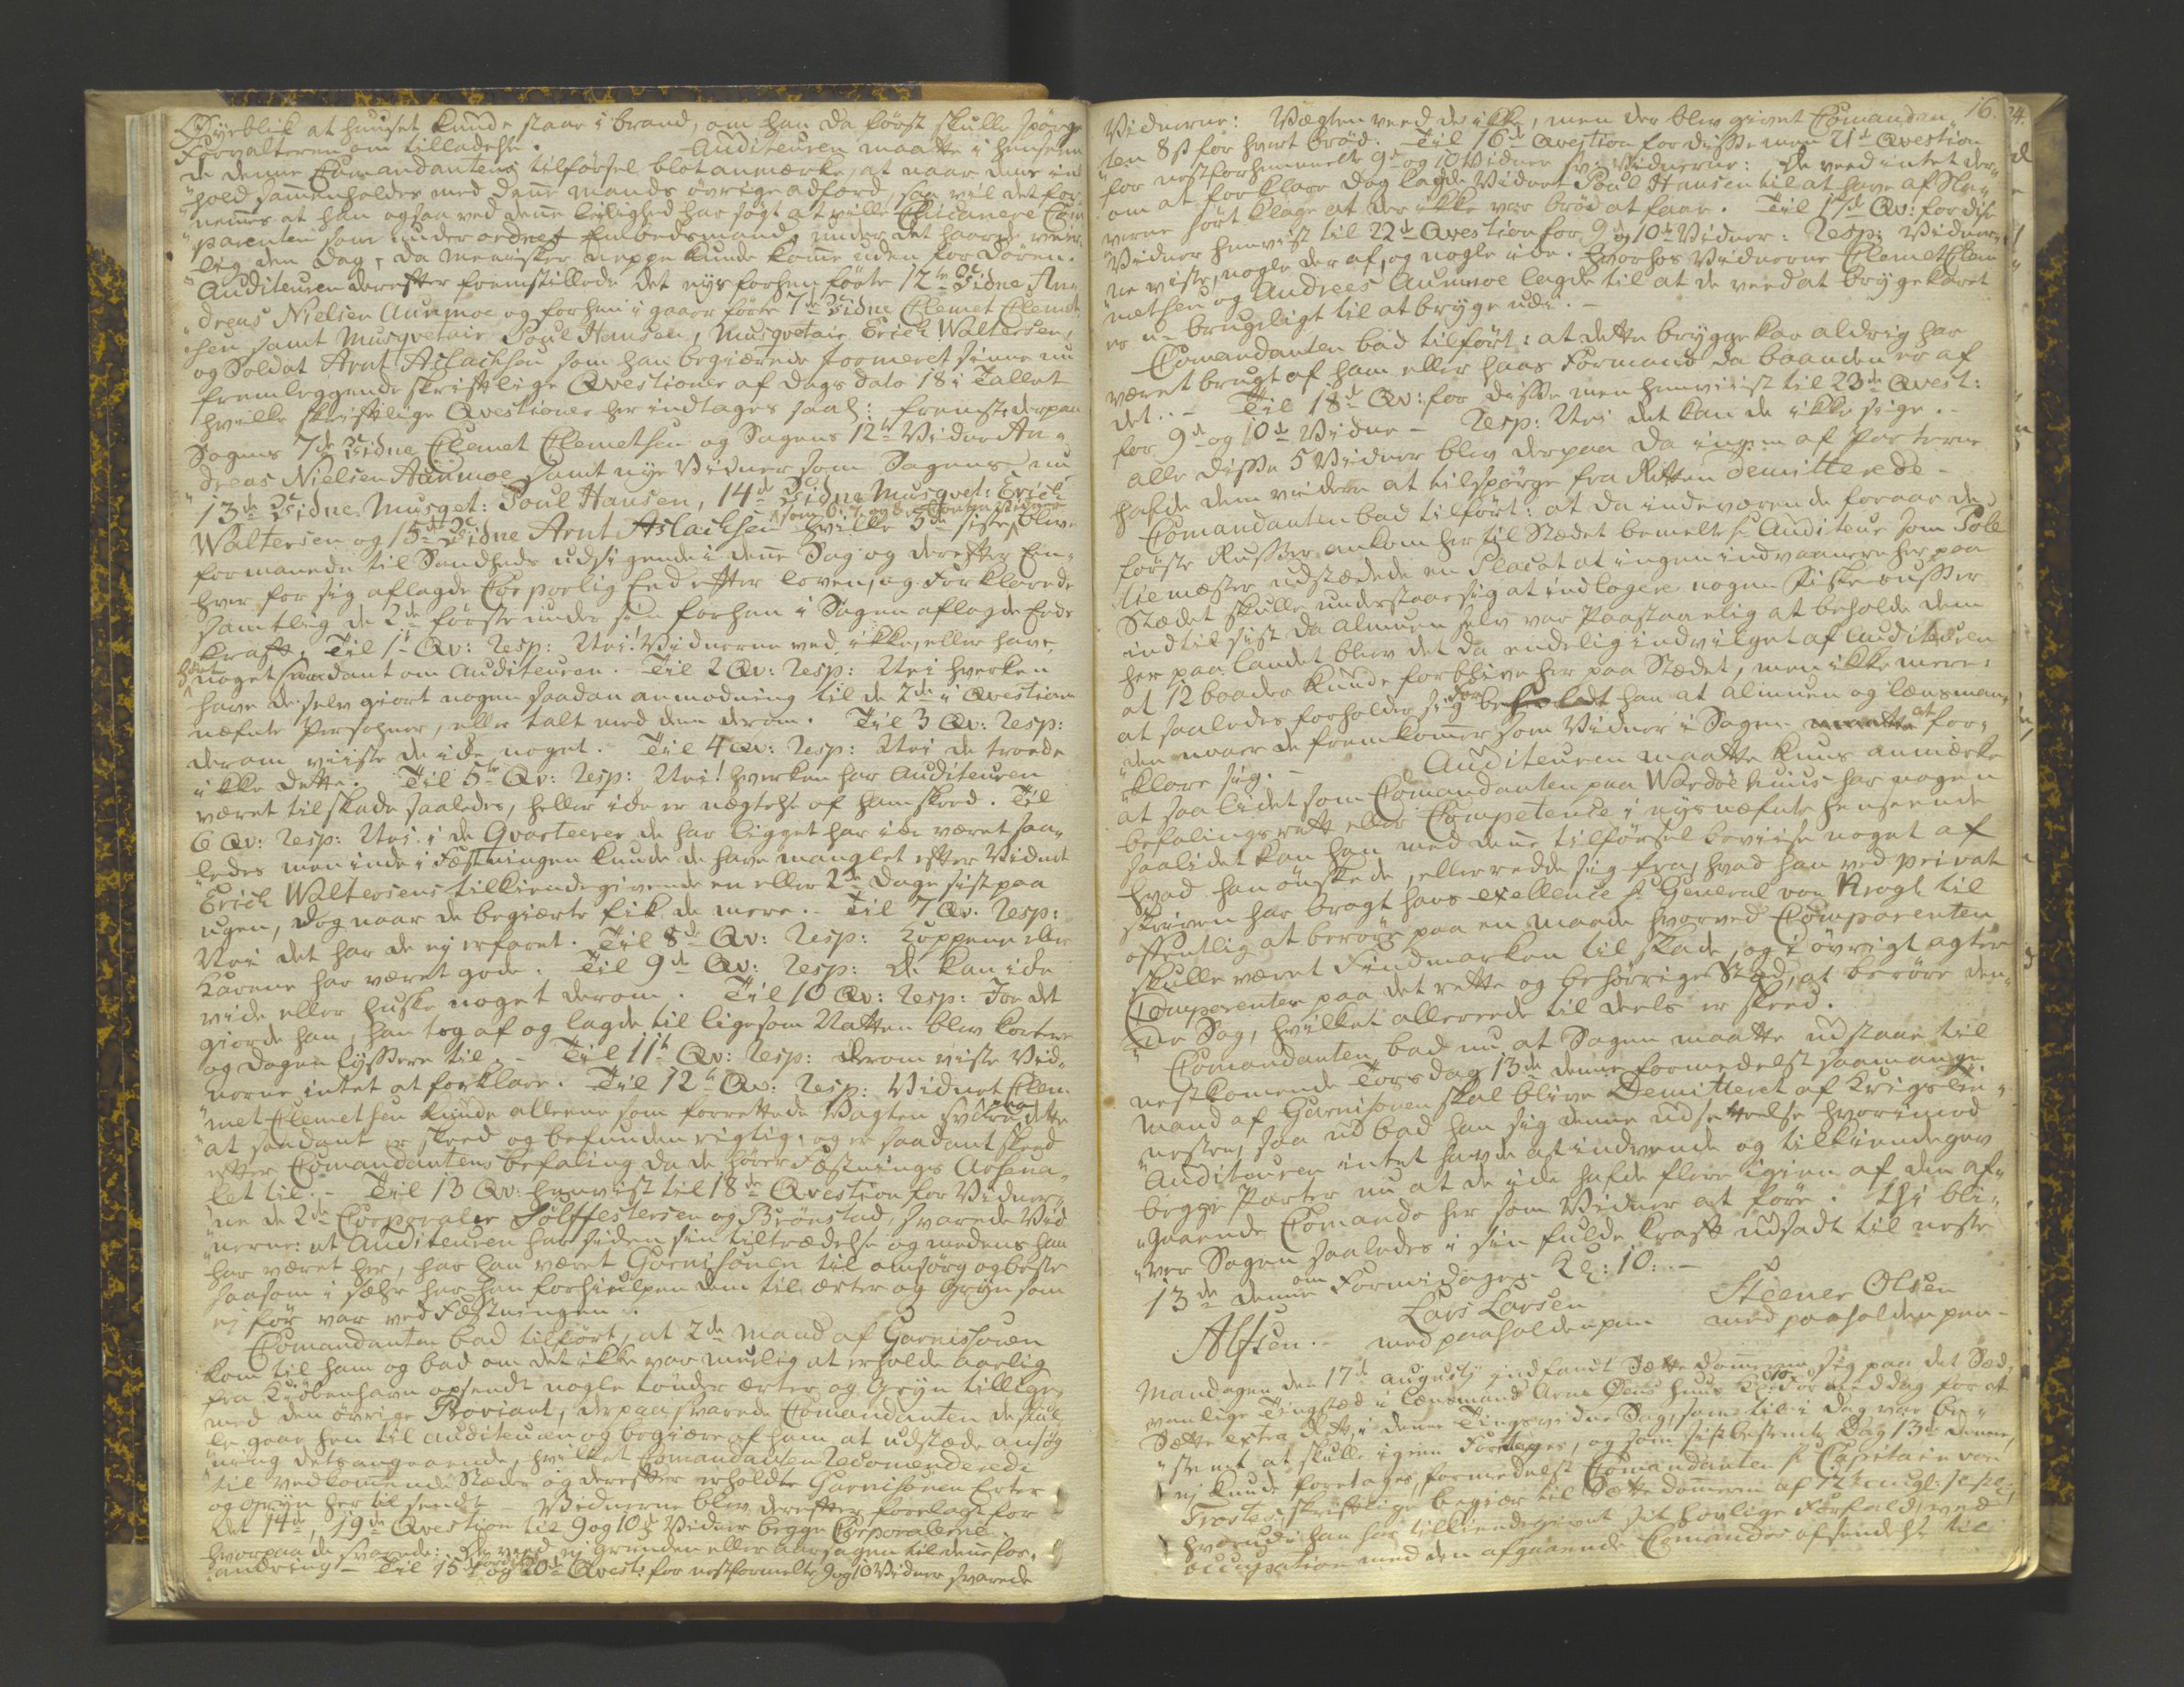 Øyeblik at huuset kunde staae i brand, om han da først skulle spørge
Forvalteren om tilladelse. Auditeuren maatte i henseen-
de denne Comandantens tilførsel blot anmærke, at naar dens ind
hold sammenholdes med denne mands øvrige adfærd, saa vil det for-
nemmes at han ogsaa ved denne leilighed har søgt at ville Chicanere Com
parenten som under ordnet Embedsmand, under det haarde veir-
lig den Dag, da mennisker neppe kunde komme uden for Døren.
Auditeuren derefter fremstillede det nys forhen førte 12te Vidne An-
dreas Nielsen Aunmoe og forhen i gaar førte 7de Vidne Clemet Clemet
sen samt Musqvetair Poul Hansen, Musqvetair Erich Waltersen,
og Soldat Arnt Aslachsen som han begiærede formeret sinne nu
fremleggende skriftlige Qvestioner af Dags Dato 18 i Tallet
hvilke skriftlige Qvestioner her indtages saal: fremst: derpaa
Sagens 7de Vidne Clemet Clemetsen og Sagens 12te Vidne An-
dreas Nielsen Aunmoe samt nye Vidner som Sagens nu
13de Vidne Musqet: Poul Hansen, 14de Vidne Musqvet: Erich
Waltersen og 15de Vidne Arnt Aslachsen hvilke 5de siste blive
formanede til Sandheds udsigende i denne Sag og derefter Een-
hver for sig aflagde Corporlig Eed efter loven, og Forklarede
samtlig de 2de første under sin forhen i Sagen aflagde Eeds
kraft. Til 1te Qv: Resp: Nei! Vidnerne ved ikke, eller have
hørt noget saadant om Auditeuren. Til 2 Qv: Resp: Nei hverken
have de selv giort nogen saadan anmodning til de 2de i Qvestion
næfnte Personer, eller talt med dem derom. Til 3 Qv: Resp:
derom viiste de icke noget. Til 4 Qv: Resp: Nei de troede
ikke dette. Til 5te Qv: Resp: Nei! hverken har Auditeuren
været til skade saaledes, heller icke er nægtelse af ham skeed. Til
6 Qv: Resp: Nei. i de Qvarteerer de har ligget har icke været saa-
ledes men inde i Fæstningen kunde de have manglet efter Vidnet
Erich Waltersens tilkiendegivende en eller 2de Dage sist paa
ugen, dog naar de begiærte fik de mere. Til 7 Qv. Resp:
Nei det har de ej erfaret. Til 8de Qv: Resp: Kuppene eller
Karene har været gode. Til 9de Qv: Resp: de kan icke
vide eller huske noget derom. Til 10 Qv: Resp: Joe det
giorde han, han tog af og lagde til ligesom Natten blev kortere
og Dagen lyssere til. Til 11te Qv: Resp: derom viste Vid-
nerne intet at forklare. Til 12te Qv: Resp: Vidnet Clem-
met Clemetsen kunde alleene som forrettede Vagten svare dette
at saadant er skeed og befunden rigtig, og er saadant skeed
efter Comandantens befaling da de hører Fæstnings Arsena-
let til. Til 13 Qv: henvist til 18de Qvestion for Vidner-
ne de 2de Corporaler Sølffestersen og Brønstad, svarede Vid
nerne: at Auditeuren har siden sin tiltrædelse og medens han
har været her, har han været Garnisonen til omsorg og beste
saasom i sær har han forhiulpen dem til ærter og Gryn som
ej før var ved Fæstningen.
Comandanten bad tilført, at 2de Mand af Garnisonen
kom til ham og bad om det ikke var muelig at erholde aarlig
fra Kiøbenhavn opsendt nogle tønder ærter og Gryn tillige
med den øvrige Proviant, derpaa svarede Comandanten de skul-
le gaae hen til Auditeuren og begiære af ham at udstæde ansøg
ning detsangaaende, hvilket Comandanten Recomenderede
til vedkommende Stæder og derefter erholdte Garnisonen Erter
og Gryn hertil sendt. Vidnerne blev derefter forelagt for
det 14de, 19de Qvestion til 9 og 10de Vidner begge Corporalerne
hvorpaa de svarede: De veed ej grunden eller aarsagen til denne for-
andring - Til 15de og 20de Qvest: for nestformelte 9 og 10 Vidner svarede
16.
Vidnerne: Vægten veed de ikke, men der blev givet Comandan-
ten 8ß for hvert brød. Til 16de Qvestion for disse men 21de Qvestion
for nestforhenmelte 9de og 10 Vidner svr: Vidnerne: De veed intet der-
om at forklare dog lagde Vidnet Poul Hansen til at have af Sla-
verne hørt klage at der ikke var brød at faae. Til 17de Qv: for disse
Vidner henvist til 22de Qvestion for 9 og 10de Vidner: Resp: Vidner-
ne viste, nogle der af, og nogle icke. Hvorhos Vidnerne Clemet Clem
metsen og Andreas Aunmoe lagde til at de veed at bryggekaret
er u-brugeligt til at brygge udi. -
Comandanten bad tilført: at dette bryggekar aldrig har
været brugt af ham eller hans Formand da baanden er af
det. - Til 18de Qv: for disse men henviist til 23de Qvest:
for 9de og 10de Vidne - Resp: Nei det kan de ikke sige. -
alle disse 5 Vidner blev derpaa da ingen af Parterne
hafde dem videre at tilspørge fra Retten Demitterede -
Comandanten bad tilført: at da indeværende foraar de
første Russer ankom her til Stædet bemelte Hr Auditeur som Poli
tiemæster udstædede en Placat at ingen indvaanere her paa
Stædet skulle understaae sig at indlogere nogen Fiskerusser
indtil sist da Almuen selv var Paastaaelig at beholde dem
her paa landet blev det da endelig indvilget af Auditeuren
at 12 baader kunde forblive her paa Stædet, men ikke mere:
at saaledes forholder sig forbeholdt han at Almuen og lænsman-
den naar de fremkommer som Vidner i Sagen at for-
klare sig. - Auditeuren maatte kuns anmærke
at saa lidet som Comandanten paa Wardøe huus har nogen
befalingsrett eller Competence i nysnæfnte henseende
saalidet kan han med denne tilførsel beviise noget af
hvad han ønskede, eller redde sig fra, hvad han ved privat
skriven har bragt hans exellence Hr General von Krogh til
offentlig at berøre paa en maade hvorved Comparenten
skulle været Findmarken til skade, og i øvrigt agter
Comparenten paa det rette og behørige Stæd, at berøre den-
de Sag, hvilket allereede til deels er skeed.
Comandanten bad nu at Sagen maatte udstaae til
nestkomende Torsdag 13de denne formedelst saamange
Mand af Garnisonen skal blive Demitteret af Krigs tie-
nesten, saa udbad han sig denne udsettelse hvorimod
Auditeuren intet havde at indvende og tilkiendegav
begge Parter nu at de icke hafde flere igien af den af-
gaaende Comando her som Vidner at føre. Thi bli-
ver Sagen saaledes i sin fulde kraft udsadt til neste
13de denne om Formidagen Kl: 10.: -
Alfsen. - Lars Larsen Steener Olsen
med paaholden pen med paaholden pen -
Mandagen den 17de Augustj indfandt Sættedommeren sig paa det Sæd-
vanlige Tingstæd i Lænsmand Arne Øens huus Kl: 10 formiddag for at
Sætte extra Rett, i denne Tingsvidne Sag, som til i dag var be-
stemt at skulle igien Foretages, og som sist bestemte Dag 13de denne,
ej kunde foretages, formedelst Comandanten Hr Capitain von
Trostes skriftlige begiær til Sættedommeren af 12te
hvorudi han har tilkiendegivet sit lovlige Forfald, ved
occupation med den afgaaende Comandos afsendelse til